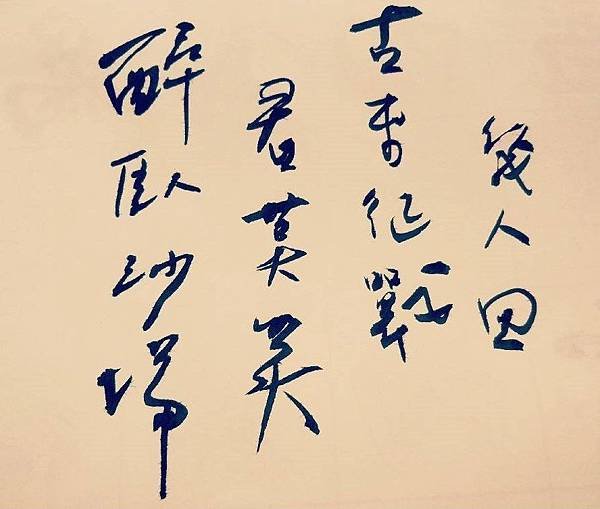 醉臥沙場
君莫笑
古來征戰
幾人回